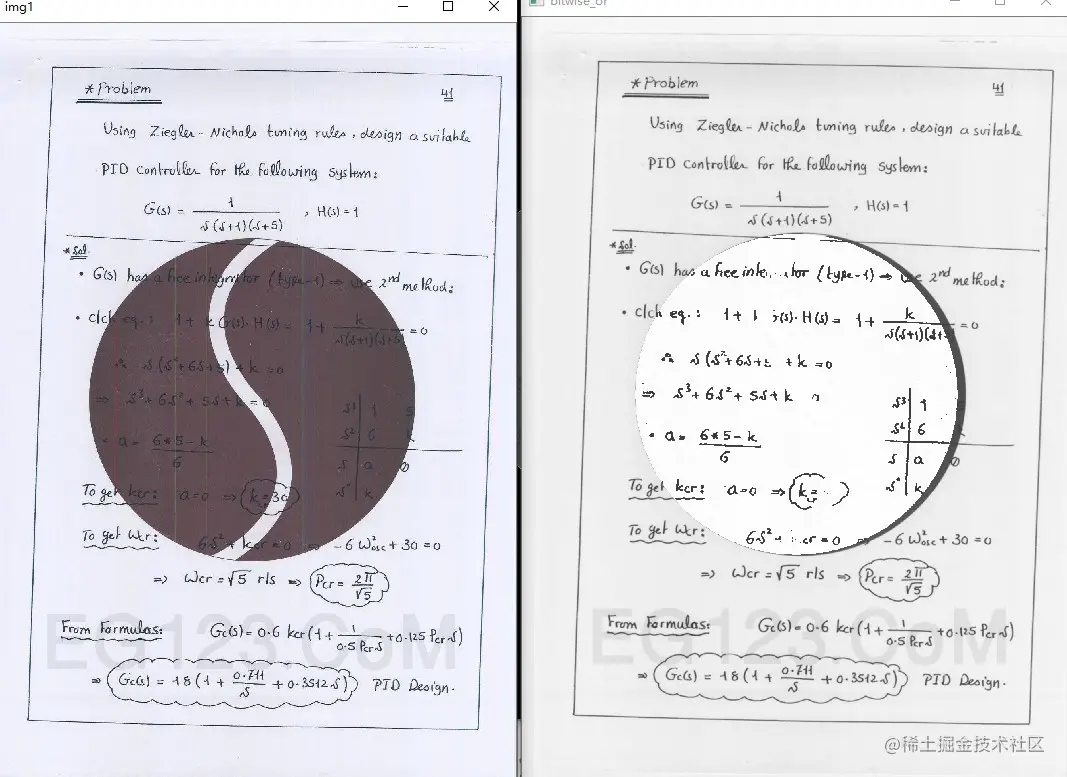 img1
* Problem
41
Using Ziegler-Nichols tuning rules, design a suitable
PID Controller for the following system:
G(s) = 1 / s(s+1)(s+5) , H(s)=1
* Sol.
• G(s) has a free integrator (type-1) ⇒ use 2nd method:
• clch eq.: 1 + k G(s)·H(s) = 1 + k / s(s+1)(s+5) = 0
∴ s(s²+6s+5)+k=0
⇒ s³+6s²+5s+k=0
s³ 1 5
s² 6 k
• a = 6*5-k / 6
s a 0
s° k
To get kcr: a=0 ⇒ kcr=30
To get Wcr: 6s²+kcr=0 ⇒ -6 W²osc + 30 = 0
⇒ Wcr = √5 r/s ⇒ Pcr = 2π / √5
From Formulas: Gc(s) = 0.6 kcr (1 + 1 / 0.5 Pcr s + 0.125 Pcr s)
⇒ Gc(s) = 18 (1 + 0.711 / s + 0.3512 s) PID Design.
EG123.CoM
bitwise_or
* Problem
41
Using Ziegler-Nichols tuning rules, design a suitable
PID Controller for the following system:
G(s) = 1 / s(s+1)(s+5) , H(s)=1
* Sol.
• G(s) has a free (type-1) ⇒ use 2nd method:
• clch eq.: 1 + (s)·H(s) = 1 + k / s(s+1)(s+ = 0
∴ s(s²+6s+ +k=0
⇒ s³+6s²+5s+k
s³ 1
s² 6
• a = 6*5-k / 6
s a 0
s° k
To get kcr: a=0 ⇒ kcr=
To get Wcr: 6s²+ cr=0 ⇒ -6 W²osc + 30 = 0
⇒ Wcr = √5 r/s ⇒ Pcr = 2π / √5
From Formulas: Gc(s) = 0.6 kcr (1 + 1 / 0.5 Pcr s + 0.125 Pcr s)
⇒ Gc(s) = 18 (1 + 0.711 / s + 0.3512 s) PID Design.
EG123.CoM
@稀土掘金技术社区